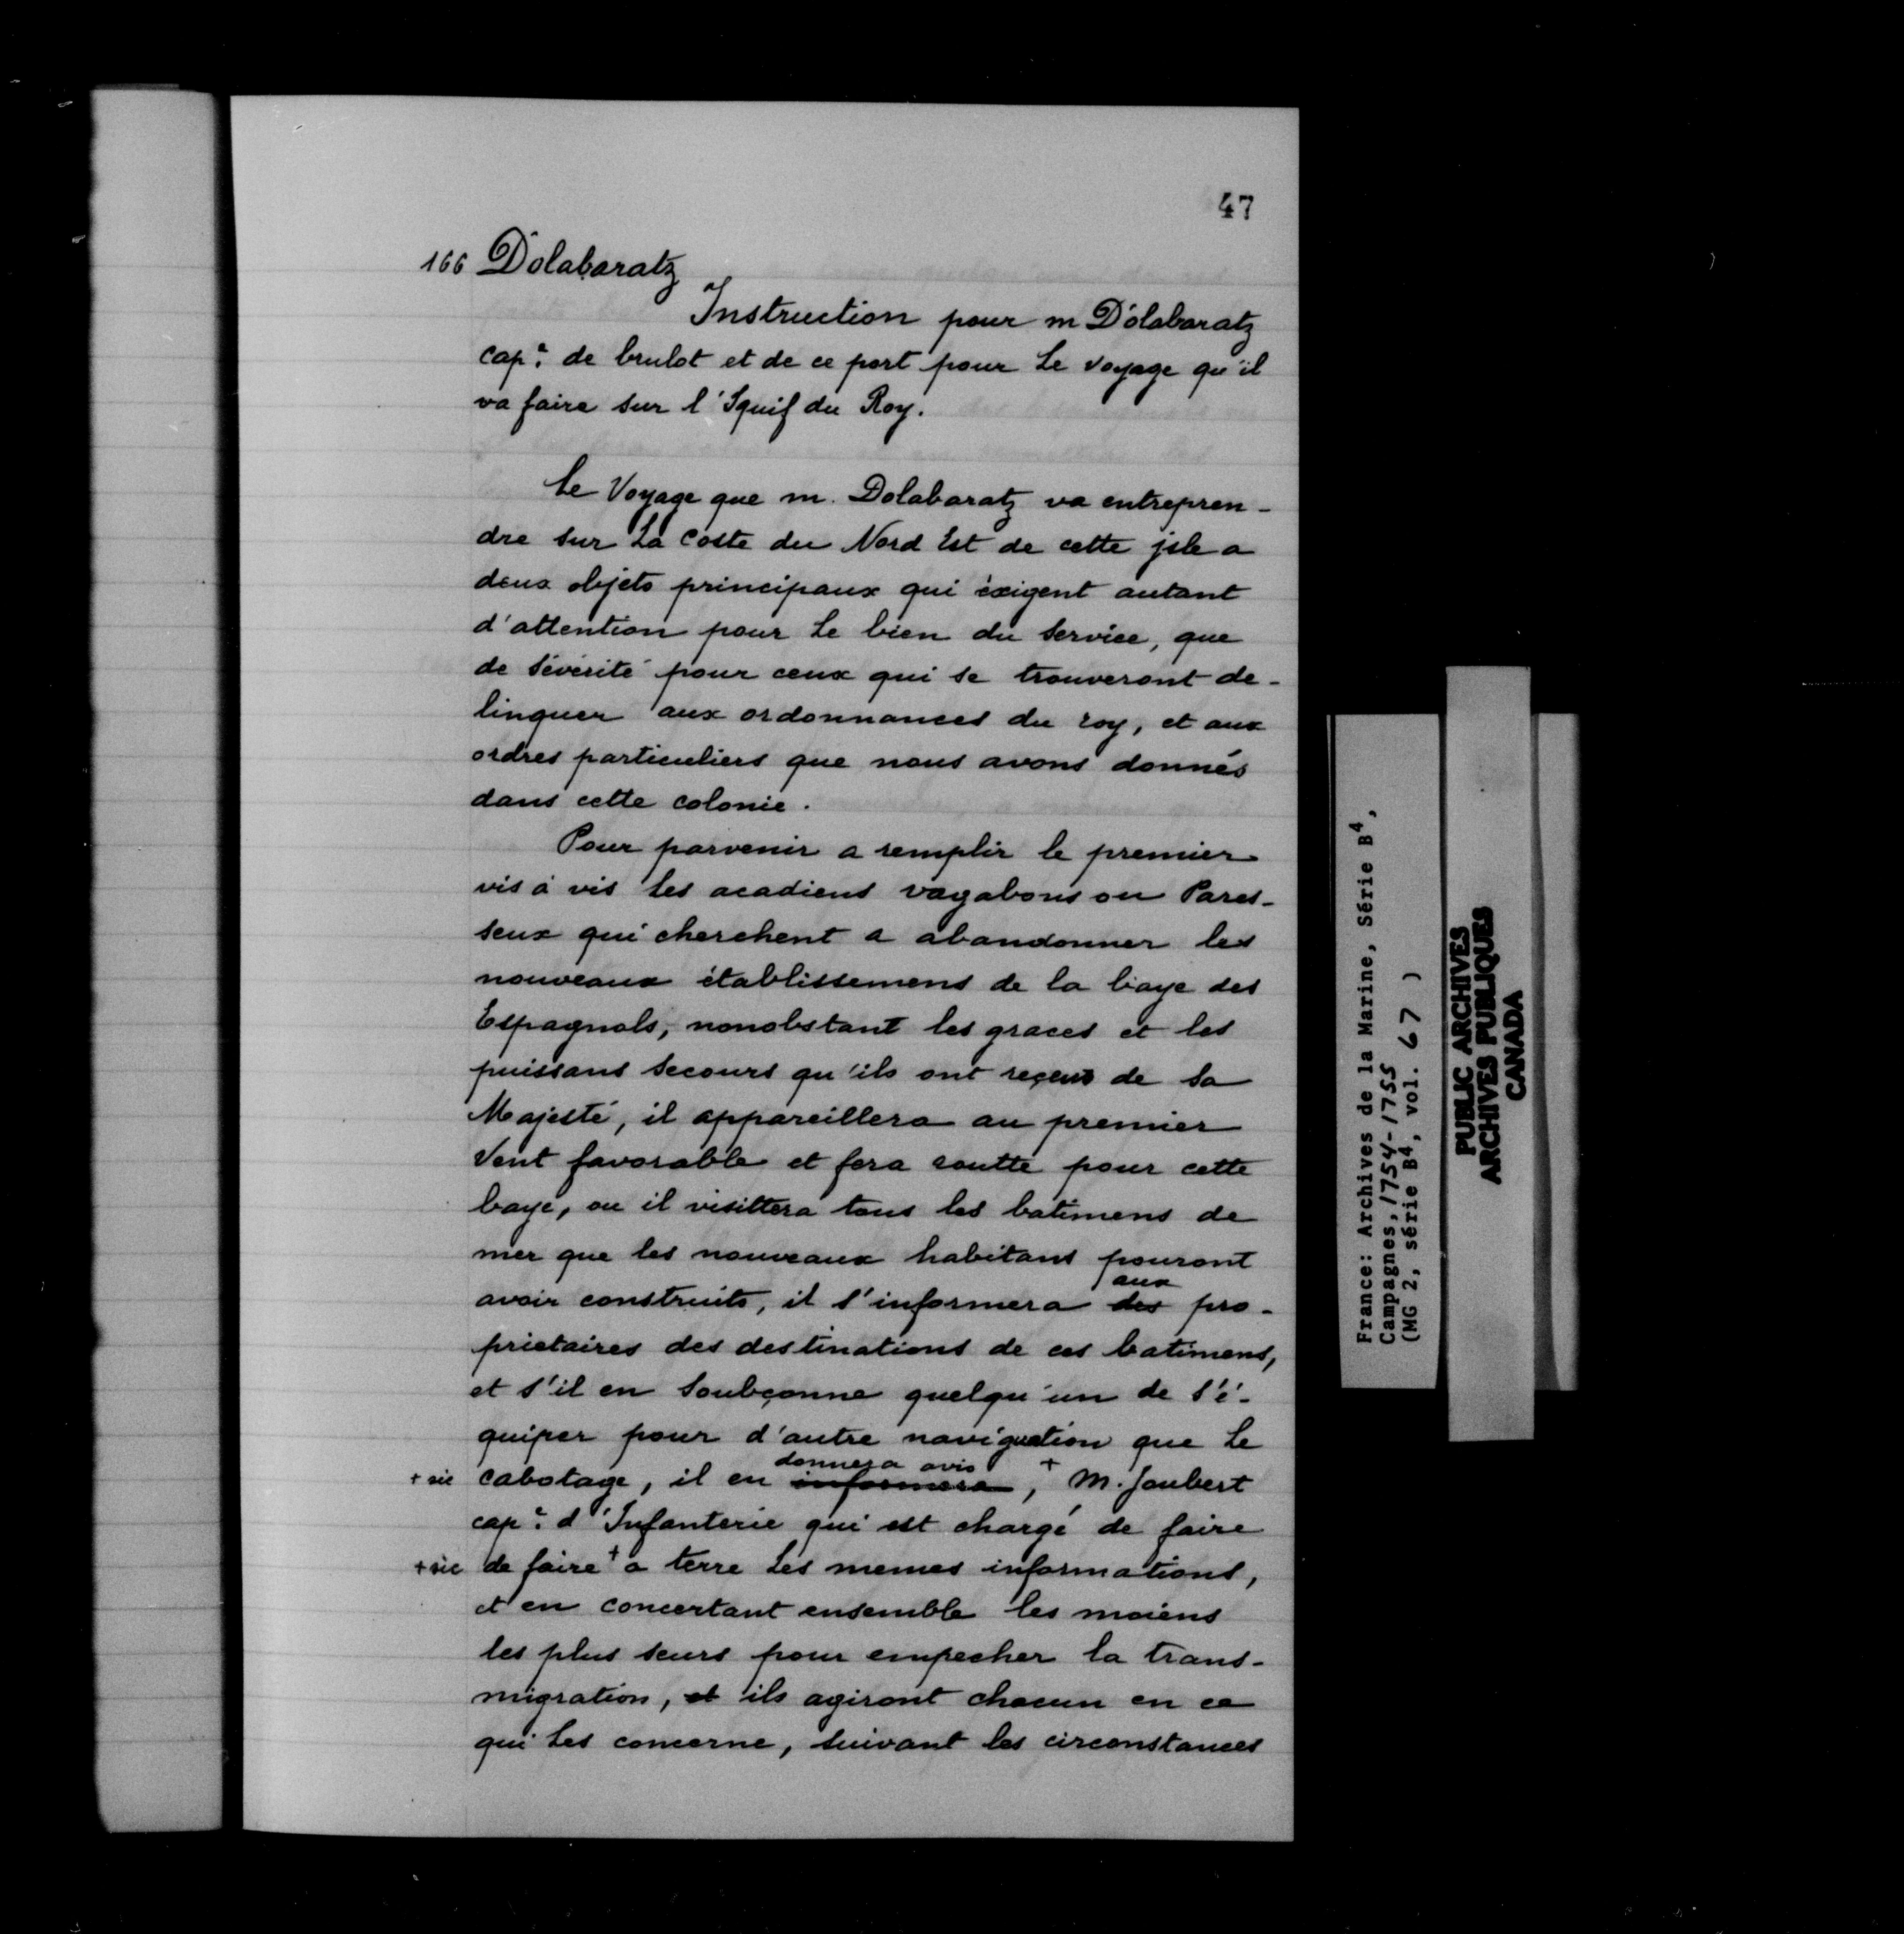 47
166 Dolabaratz
Instruction pour m Dolabaratz
cap.e de brulot et de ce port pour Le voyage qu'il
va faire sur l'Squif du Roy.
Le Voyage que m. Dolabaratz va entrepren-
dre sur La Coste du Nord Est de cette jsle a
deux objets principaux qui éxigent autant
d'attention pour Le bien du Service, que
de Sévérité pour ceux qui se trouveront de-
linquer aux ordonnances du roy, et aux
ordres particuliers que nous avons donnés
dans cette colonie.
Pour parvenir a remplir le premier
vis à vis Les acadiens vagabons ou Pares-
seux qui cherchent a abandonner les
nouveaux établissemens de la baye des
Espagnols, nonobstant les graces et les
puissans secours qu'ils ont reçeus de Sa
Majesté, il appareillera au premier
Vent favorable et fera routte pour cette
baye, ou il visittera tous les batimens de
mer que les nouveaux habitans pouront
avoir construits, il s'informera des aux pro-
prietaires des destinations de ces batimens,
et s'il en Soubçonne quelqu'un de s'é-
quiper pour d'autre naviguation que Le
+ sic cabotage, il en informera donnera avis, + M. Joubert
cap.e d'Infanterie qui est chargé de faire
+ sic de faire + a terre Les memes informations,
et en concertant ensemble les moiens
les plus seurs pour empecher la trans-
migration, et ils agiront chacun en ce
qui Les concerne, suivant les circonstances
France: Archives de la Marine, Série B4,
Campagnes, 1754-1755
(MG 2, série B4, vol. 67 )
PUBLIC ARCHIVES
ARCHIVES PUBLIQUES
CANADA